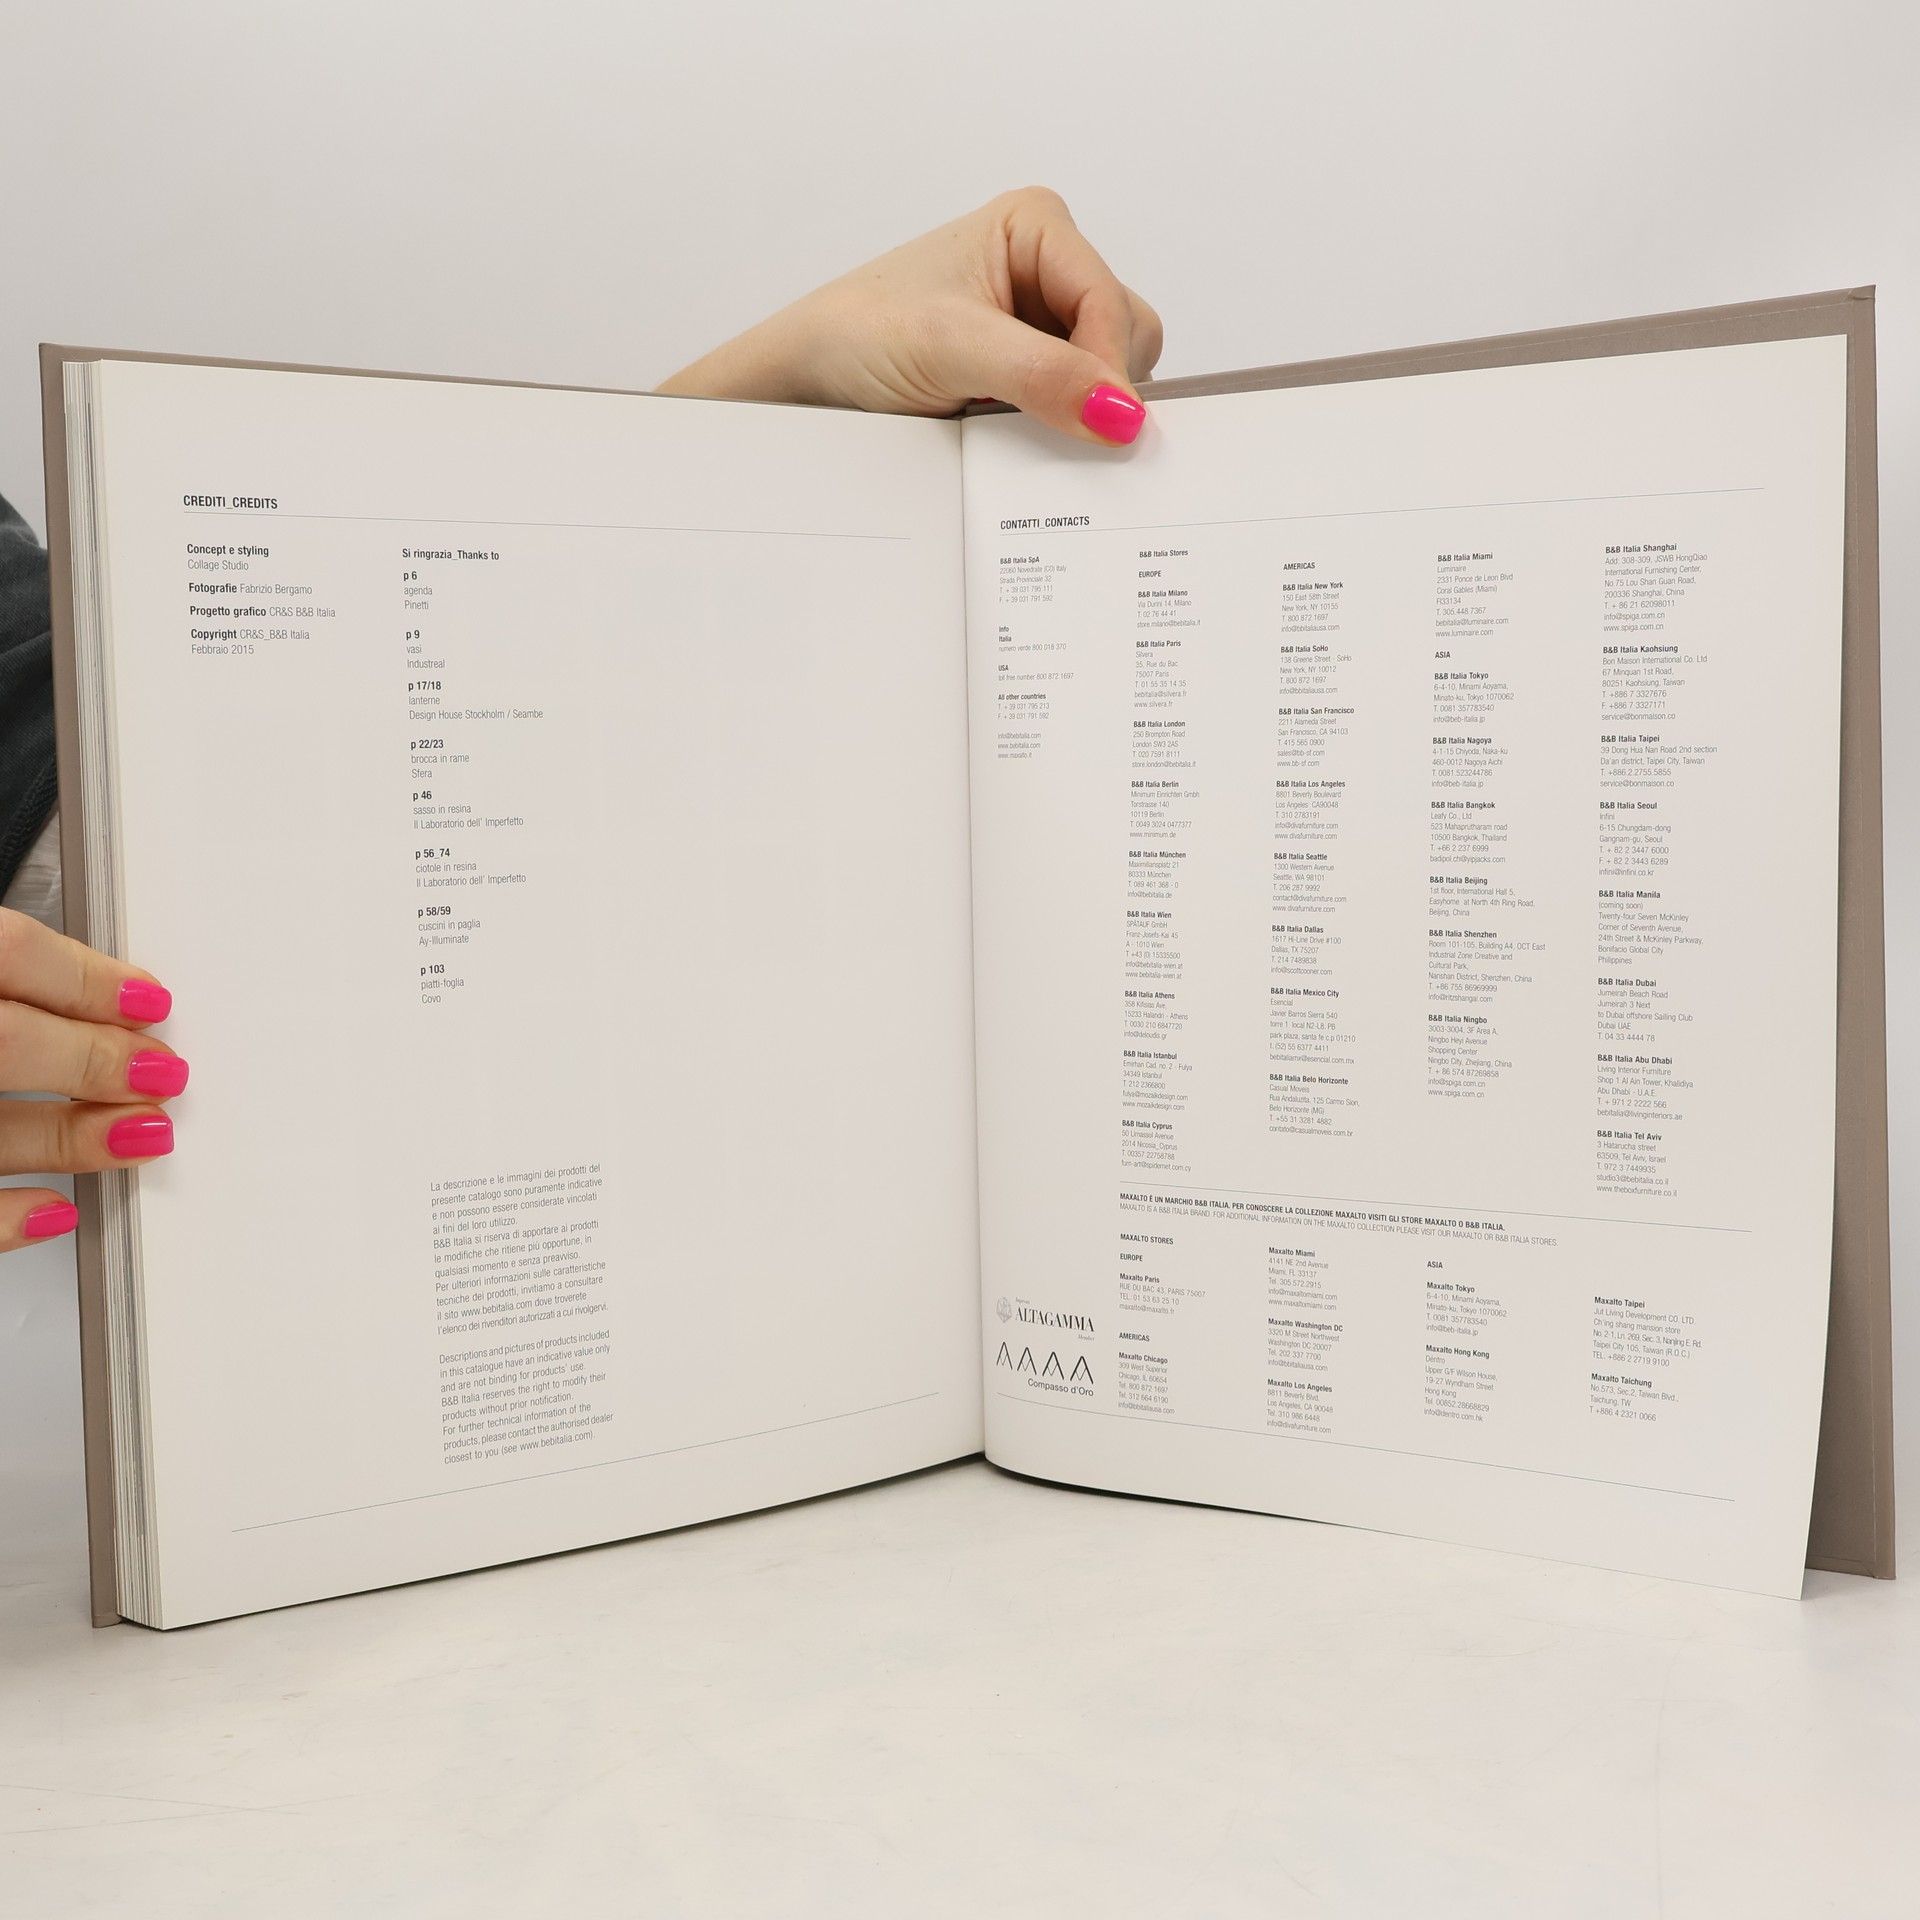 CREDITI_CREDITS
Concept e styling
Collage Studio
Fotografie Fabrizio Bergamo
Progetto grafico CR&S B&B Italia
Copyright CR&S_B&B Italia
Febbraio 2015
Si ringrazia_Thanks to
p 6
agenda
Pinetti
p 9
vasi
Industreal
p 17/18
lanterne
Design House Stockholm / Seambe
p 22/23
brocca in rame
Sfera
p 46
sasso in resina
Il Laboratorio dell' Imperfetto
p 56_74
ciotole in resina
Il Laboratorio dell' Imperfetto
p 58/59
cuscini in paglia
Ay-Illuminate
p 103
piatti-foglia
Covo
La descrizione e le immagini dei prodotti del
presente catalogo sono puramente indicative
e non possono essere considerate vincolati
ai fini del loro utilizzo.
B&B Italia si riserva di apportare ai prodotti
le modifiche che ritiene più opportune, in
qualsiasi momento e senza preavviso.
Per ulteriori informazioni sulle caratteristiche
tecniche dei prodotti, invitiamo a consultare
il sito www.bebitalia.com dove troverete
l'elenco dei rivenditori autorizzati a cui rivolgervi.
Descriptions and pictures of products included
in this catalogue have an indicative value only
and are not binding for products' use.
B&B Italia reserves the right to modify their
products without prior notification.
For further technical information of the
products, please contact the authorised dealer
closest to you (see www.bebitalia.com).
CONTATTI_CONTACTS
B&B Italia SpA
22060 Novedrate (CO) Italy
Strada Provinciale 32
T. + 39 031 795 111
F. + 39 031 791 592
Info
Italia
numero verde 800 018 370
USA
toll free number 800 872 1697
All other countries
T. + 39 031 795 213
F. + 39 031 791 592
info@bebitalia.com
www.bebitalia.com
www.maxalto.it
ALTAGAMMA
Member
Compasso d'Oro
B&B Italia Stores
EUROPE
B&B Italia Milano
Via Durini 14, Milano
T. 02 76 44 41
store.milano@bebitalia.it
B&B Italia Paris
Silvera
35, Rue du Bac
75007 Paris
T. 01 55 35 14 35
bebitalia@silvera.fr
www.silvera.fr
B&B Italia London
250 Brompton Road
London SW3 2AS
T. 020 7591 8111
store.london@bebitalia.it
B&B Italia Berlin
Minimum Einrichten Gmbh
Torstrasse 140
10119 Berlin
T. 0049 3024 0477377
www.minimum.de
B&B Italia München
Maximiliansplatz 21
80333 München
T. 089 461 368 - 0
info@bebitalia.de
B&B Italia Wien
SPÄTAUF GmbH
Franz-Josefs-Kai 45
A - 1010 Wien
T +43 (0) 15335500
info@bebitalia-wien.at
www.bebitalia-wien.at
B&B Italia Athens
358 Kifisias Ave.
15233 Halandri - Athens
T. 0030 210 6847720
info@deloudis.gr
B&B Italia Istanbul
Emirhan Cad. no. 2 - Fulya
34349 Istanbul
T. 212 2366800
fulya@mozaikdesign.com
www.mozaikdesign.com
B&B Italia Cyprus
50 Limassol Avenue
2014 Nicosia_Cyprus
T. 00357 22758788
furn-art@spidernet.com.cy
AMERICAS
B&B Italia New York
150 East 58th Street
New York, NY 10155
T. 800 872 1697
info@bbitaliausa.com
B&B Italia SoHo
138 Greene Street - SoHo
New York, NY 10012
T. 800 872 1697
info@bbitaliausa.com
B&B Italia San Francisco
2211 Alameda Street
San Francisco, CA 94103
T. 415 565 0900
sales@bb-sf.com
www.bb-sf.com
B&B Italia Los Angeles
8801 Beverly Boulevard
Los Angeles CA90048
T. 310 2783191
info@divafurniture.com
www.divafurniture.com
B&B Italia Seattle
1300 Western Avenue
Seattle, WA 98101
T. 206 287 9992
contact@divafurniture.com
www.divafurniture.com
B&B Italia Dallas
1617 Hi-Line Drive #100
Dallas, TX 75207
T. 214 7489838
info@scottcooner.com
B&B Italia Mexico City
Esencial
Javier Barros Sierra 540
torre 1 local N2-L8, PB
park plaza, santa fe c.p 01210
t. (52) 55 6377 4411
bebitaliamx@esencial.com.mx
B&B Italia Belo Horizonte
Casual Moveis
Rua Andaluzita, 125 Carmo Sion,
Belo Horizonte (MG)
T. +55 31 3281 4882
contato@casualmoveis.com.br
B&B Italia Miami
Luminaire
2331 Ponce de Leon Blvd
Coral Gables (Miami)
Fl33134
T. 305 448 7367
bebitalia@luminaire.com
www.luminaire.com
ASIA
B&B Italia Tokyo
6-4-10, Minami Aoyama,
Minato-ku, Tokyo 1070062
T. 0081 357783540
info@beb-italia.jp
B&B Italia Nagoya
4-1-15 Chiyoda, Naka-ku
460-0012 Nagoya Aichi
T. 0081 523244786
info@beb-italia.jp
B&B Italia Bangkok
Leafy Co., Ltd
523 Mahaprutharam road
10500 Bangkok, Thailand
T. +66 2 237 6999
badipol.ch@yipjacks.com
B&B Italia Beijing
1st floor, International Hall 5,
Easyhome at North 4th Ring Road,
Beijing, China
B&B Italia Shenzhen
Room 101-105, Building A4, OCT East
Industrial Zone Creative and
Cultural Park,
Nanshan District, Shenzhen, China
T. +86 755 86969999
info@ritzshangai.com
B&B Italia Ningbo
3003-3004, 3F Area A,
Ningbo Heyi Avenue
Shopping Center
Ningbo City, Zhejiang, China
T. + 86 574 87269858
info@spiga.com.cn
www.spiga.com.cn
B&B Italia Shanghai
Add: 308-309, JSWB HongQiao
International Furnishing Center,
No.75 Lou Shan Guan Road,
200336 Shanghai, China
T. + 86 21 62098011
info@spiga.com.cn
www.spiga.com.cn
B&B Italia Kaohsiung
Bon Maison International Co. Ltd
67 Minquan 1st Road,
80251 Kaohsiung, Taiwan
T. +886 7 3327676
F. +886 7 3327171
service@bonmaison.co
B&B Italia Taipei
39 Dong Hua Nan Road 2nd section
Da'an district, Taipei City, Taiwan
T. +886 2 2755 5855
service@bonmaison.co
B&B Italia Seoul
Infini
6-15 Chungdam-dong
Gangnam-gu, Seoul
T. + 82 2 3447 6000
F. + 82 2 3443 6289
infini@infini.co.kr
B&B Italia Manila
(coming soon)
Twenty-four Seven McKinley
Corner of Seventh Avenue,
24th Street & McKinley Parkway,
Bonifacio Global City
Philippines
B&B Italia Dubai
Jumeirah Beach Road
Jumeirah 3 Next
to Dubai offshore Sailing Club
Dubai UAE
T. 04 33 4444 78
B&B Italia Abu Dhabi
Living Interior Furniture
Shop 1 Al Ain Tower, Khalidiya
Abu Dhabi - U.A.E.
T. + 971 2 2222 566
bebitalia@livinginteriors.ae
B&B Italia Tel Aviv
3 Hatarucha street
63509, Tel Aviv, Israel
T. 972 3 7449935
studio3@bebitalia.co.il
www.theboxfurniture.co.il
MAXALTO È UN MARCHIO B&B ITALIA. PER CONOSCERE LA COLLEZIONE MAXALTO VISITI GLI STORE MAXALTO O B&B ITALIA.
MAXALTO IS A B&B ITALIA BRAND. FOR ADDITIONAL INFORMATION ON THE MAXALTO COLLECTION PLEASE VISIT OUR MAXALTO OR B&B ITALIA STORES.
MAXALTO STORES
EUROPE
Maxalto Paris
RUE DU BAC 43, PARIS 75007
TEL. 01 53 63 25 10
maxalto@maxalto.fr
AMERICAS
Maxalto Chicago
309 West Superior
Chicago, IL 60654
Tel. 800 872 1697
Tel. 312 664 6190
info@bbitaliausa.com
Maxalto Miami
4141 NE 2nd Avenue
Miami, FL 33137
Tel. 305 572 2915
info@maxaltomiami.com
www.maxaltomiami.com
Maxalto Washington DC
3320 M Street Northwest
Washington DC 20007
Tel. 202 337 7700
info@bbitaliausa.com
Maxalto Los Angeles
8811 Beverly Blvd.
Los Angeles, CA 90048
Tel. 310 986 6448
info@divafurniture.com
ASIA
Maxalto Tokyo
6-4-10, Minami Aoyama,
Minato-ku, Tokyo 1070062
T. 0081 357783540
info@beb-italia.jp
Maxalto Hong Kong
Dentro
Upper G/F Wilson House,
19-27 Wyndham Street
Hong Kong
Tel. 00852.28668829
info@dentro.com.hk
Maxalto Taipei
Jut Living Development CO. LTD.
Ch'ing shang mansion store
No. 2-1, Ln. 269, Sec. 3, Nanjing E. Rd.
Taipei City 105, Taiwan (R.O.C.)
TEL. +886 2 2719 9100
Maxalto Taichung
No.573, Sec.2, Taiwan Blvd.,
Taichung, TW
T +886 4 2321 0066